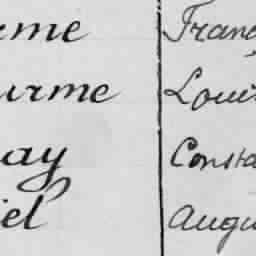 rme Franç
urme Loui
ay Consta
iel Augu